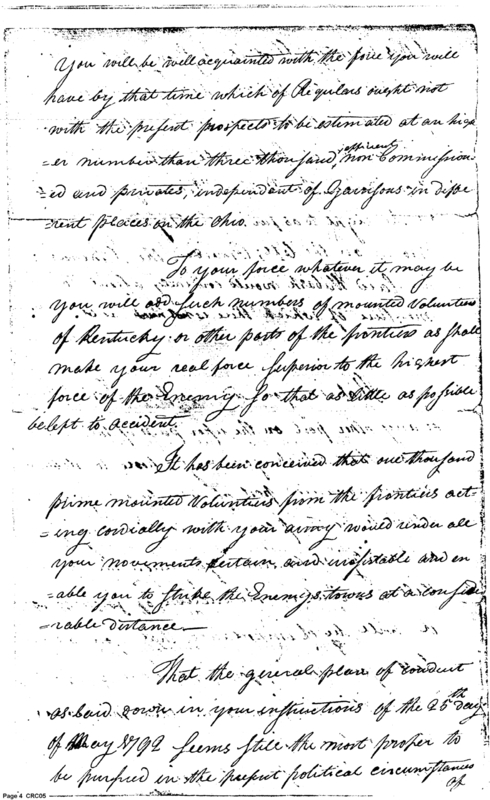 You will be well acquainted with the force you will
have by that time which of Regulars ought not
with the present prospects to be estimated at an high
=er number than three thousand, effective non Commission
=ed and privates, independent of Garrisons in diffe
=rent places on the Ohio.
To your force whatever it may be
you will add such numbers of mounted Volunteers
of Kentucky or other parts of the frontiers as shall
make your real force superior to the highest
force of the Enemy so that as little as possible
be left to accident.
It has been conceived that one thousand
prime mounted Volunteers from the frontiers act-
=ing cordially with your army would render all
your movements certain and irresistable and en
=able you to strike the Enemys towns at a conside
=rable distance—
That the general plan of conduct
as laid down in your instructions of the 25th day
of May 1792 seems still the most proper to
be pursued in the present political circumstances
of
Page 4 CRC05